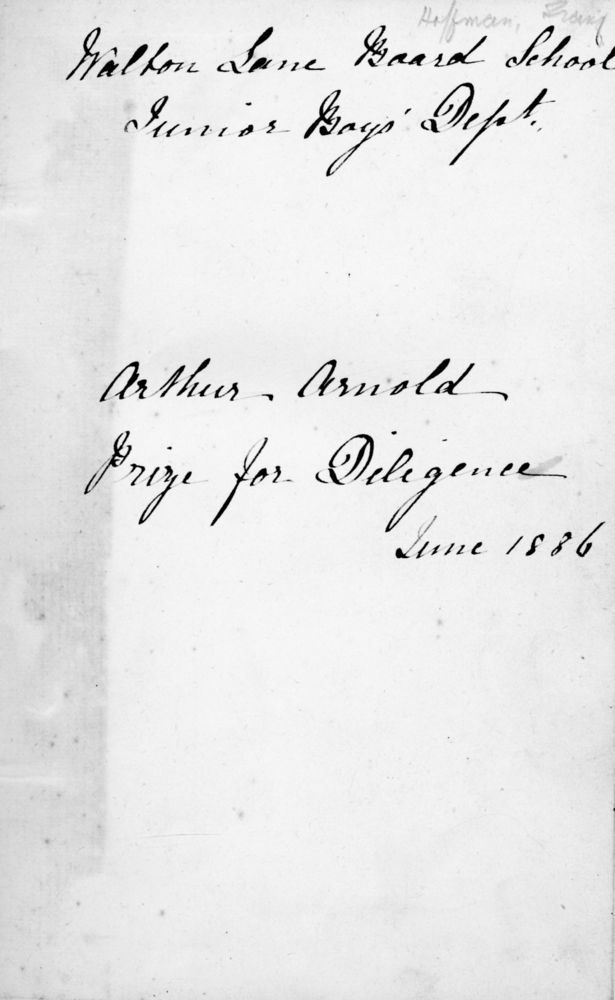 Hoffman, Franz
Walton Lane Board School
Junior Boys' Dept.
Arthur Arnold
Prize for Diligence
June 1886